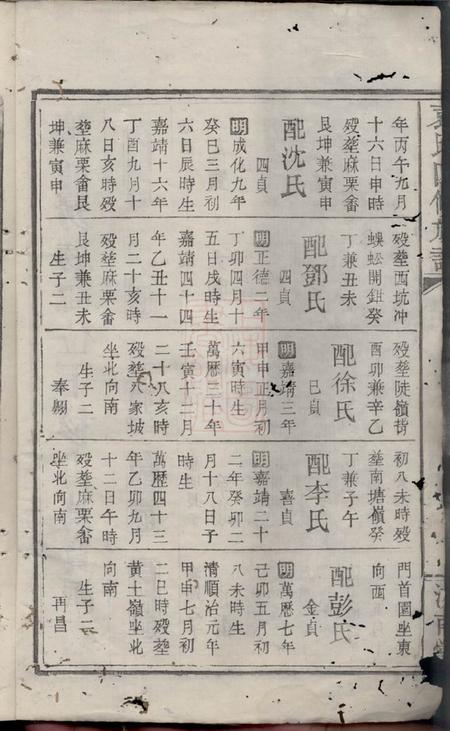 年丙午九月
十六日申時
殁塟麻栗畬
艮坤兼寅申
配沈氏
四貞
明成化九年
癸巳三月初
六日辰時生
嘉靖十六年
丁酉九月十
八日亥時殁
塟麻栗畬艮
坤兼寅申
殁塟西坑冲
蜈蚣開鉗癸
丁兼丑未
配鄧氏
四貞
明正德二年
丁卯四月十
五日戌時生
嘉靖四十四
年乙丑十一
月二十亥時
殁塟麻栗畬
艮坤兼丑未
生子二
殁塟陡嶺㟁
酉卯兼辛乙
配徐氏
巳貞
明嘉靖三年
甲申正月初
六寅時生
萬曆三十年
壬寅十二月
二十八亥時
殁塟八家坡
坐北向南
生子二
奉賜
初八未時殁
塟南塘嶺癸
丁兼子午
配李氏
喜貞
明嘉靖二十
二年癸卯二
月十八日子
時生
萬曆四十三
年乙卯九月
十二日午時
殁塟麻栗畬
坐北向南
門首園坐東
向酉
配彭氏
金貞
明萬曆七年
己卯五月初
八未時生
清順治元年
甲申七月初
二巳時殁塟
黄土嶺坐北
向南
生子二
再昌